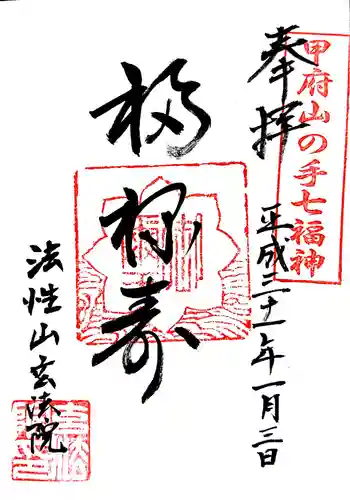 甲府山の手七福神
奉拝
平成二十一年一月三日
福禄寿
法性山玄法院